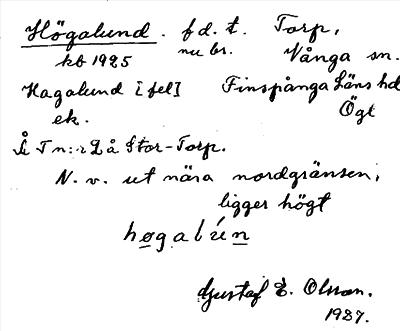 Högalund. f d. t. Torp,
kb 1925 nu br. Vånga sn.
Hagalund [fel] Finspånga Läns hd
ek. Ögt
Å Tn:r 2 å Stor-Torp.
N. v. ut nära nordgränsen,
ligger högt
høgalún
Gustaf E. Olsson.
1927.